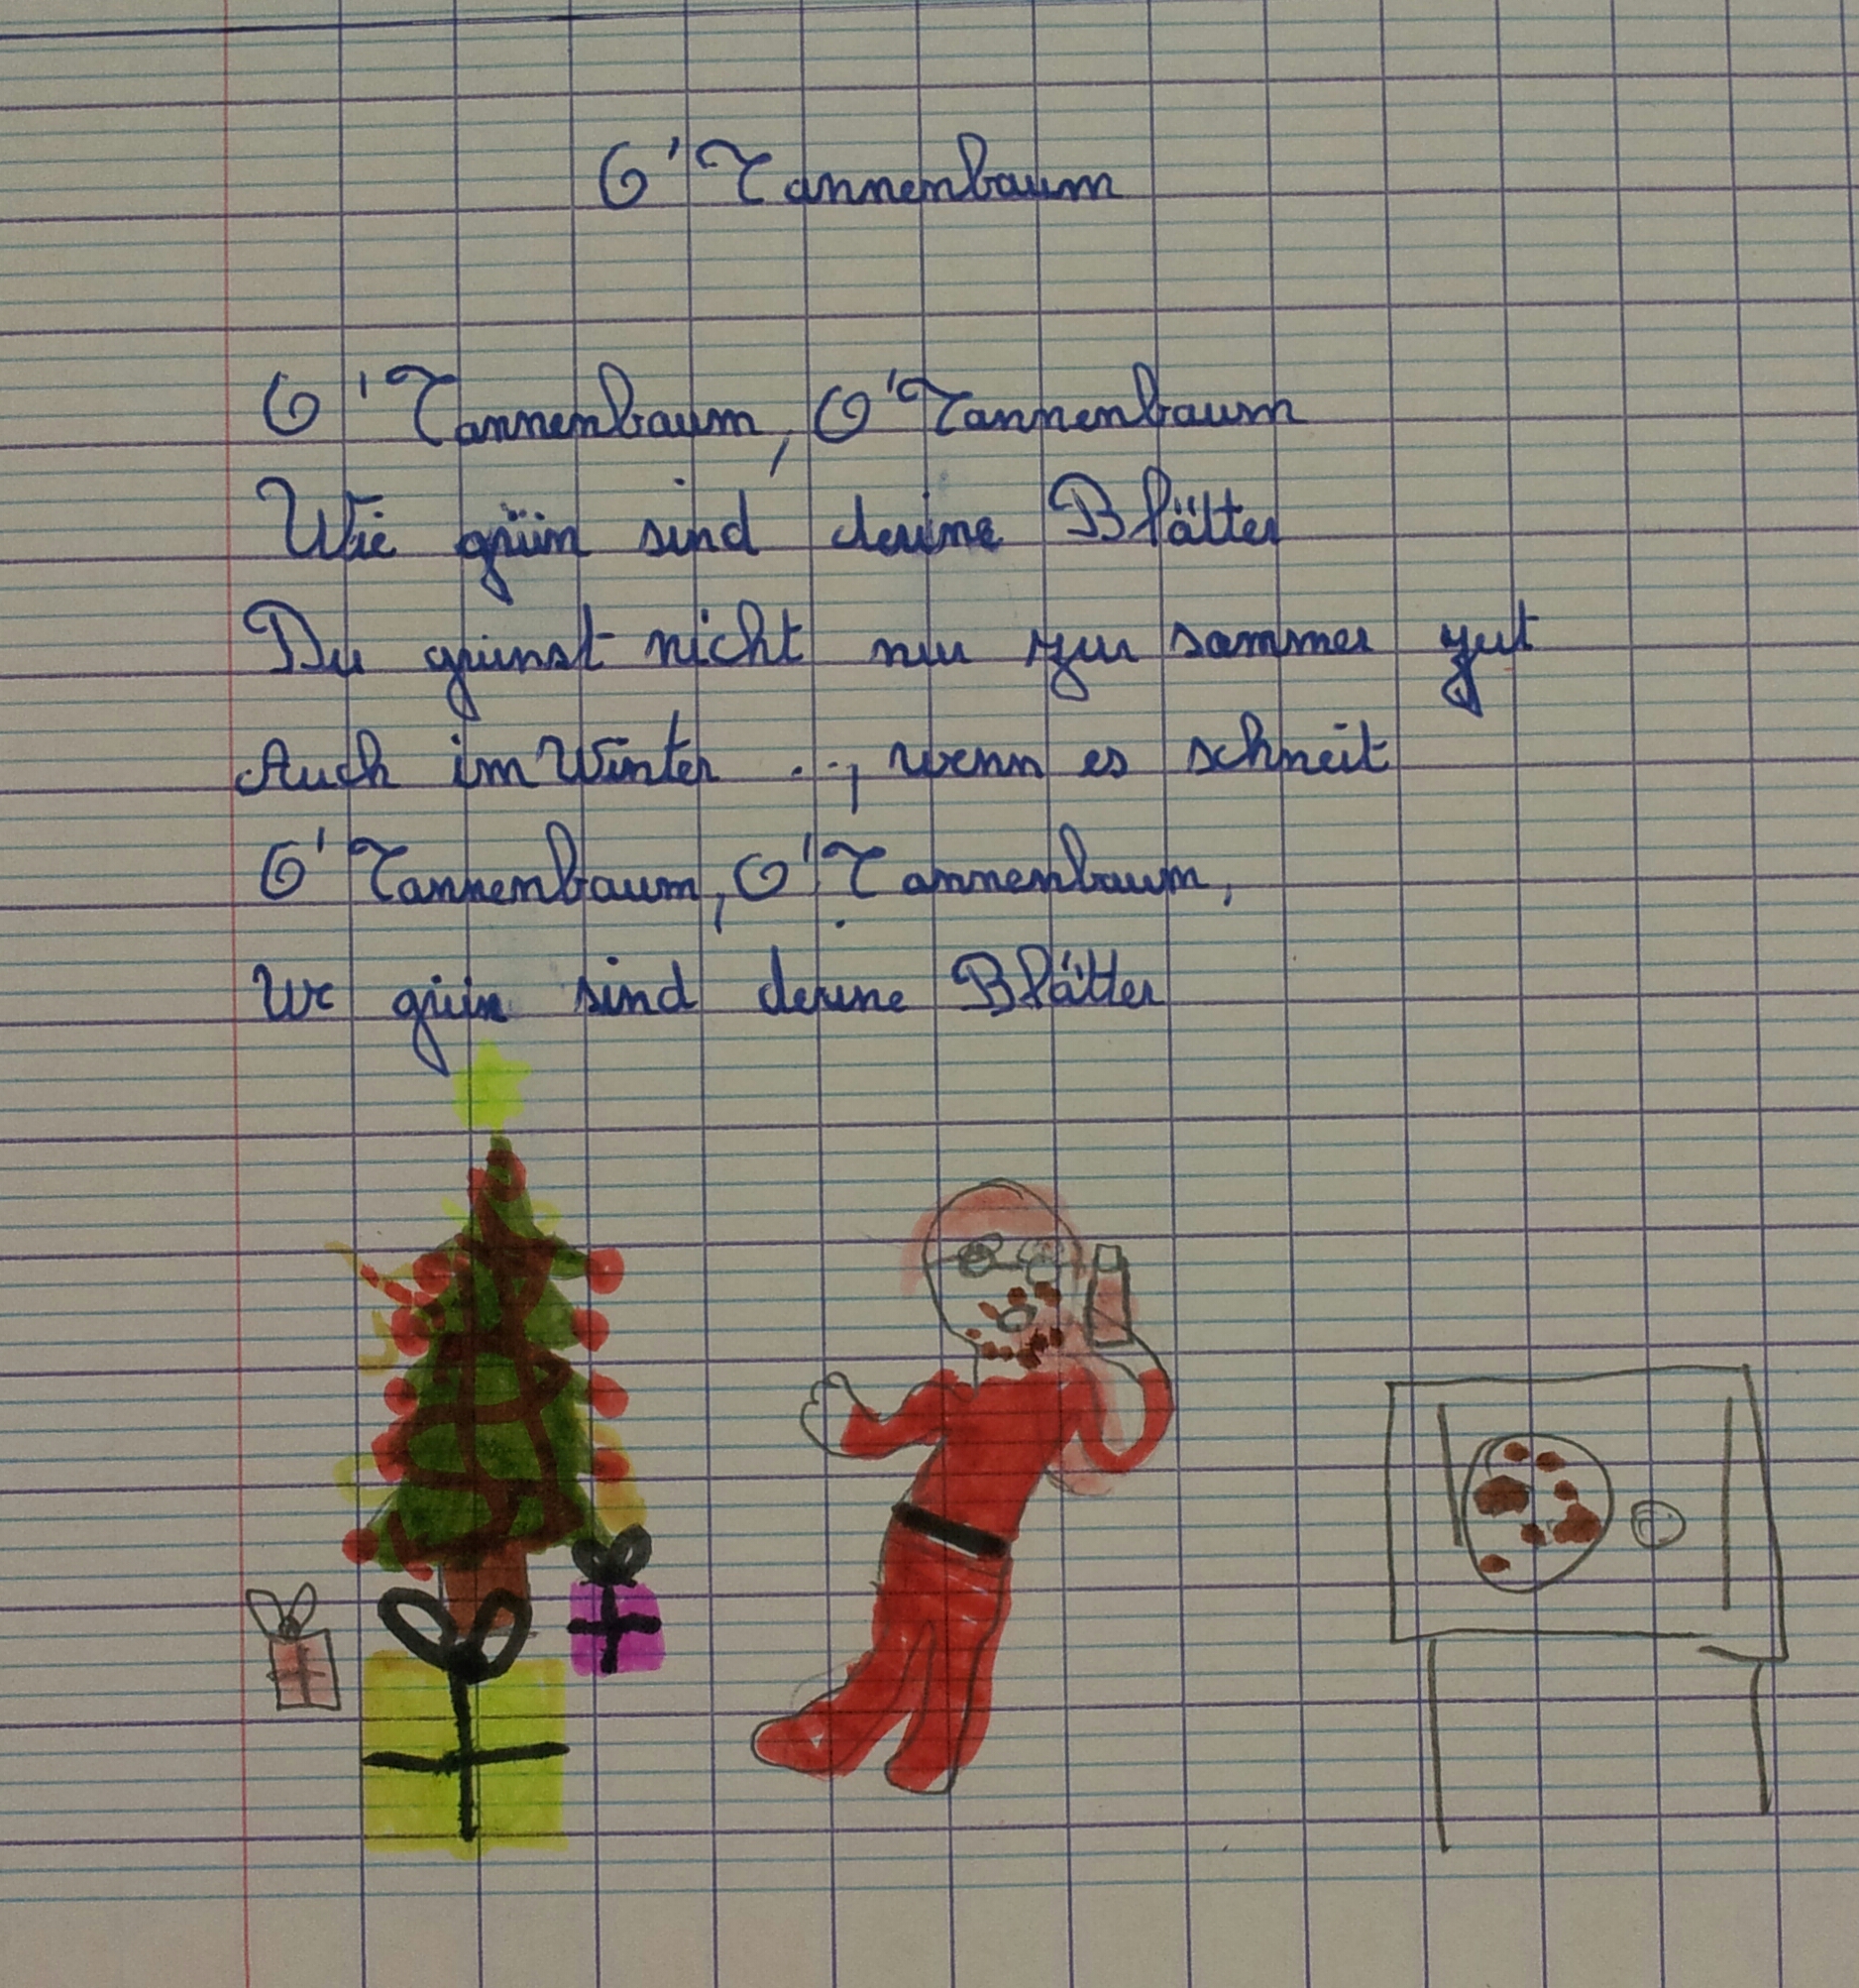 O' Tannenbaum
O' Tannenbaum, O' Tannenbaum
Wie grün sind deine Blätter
Du grünst nicht nur zur sommer gut
Auch im Winter ..., wenn es schneit
O' Tannenbaum, O' Tannenbaum,
We grün sind deine Blätter